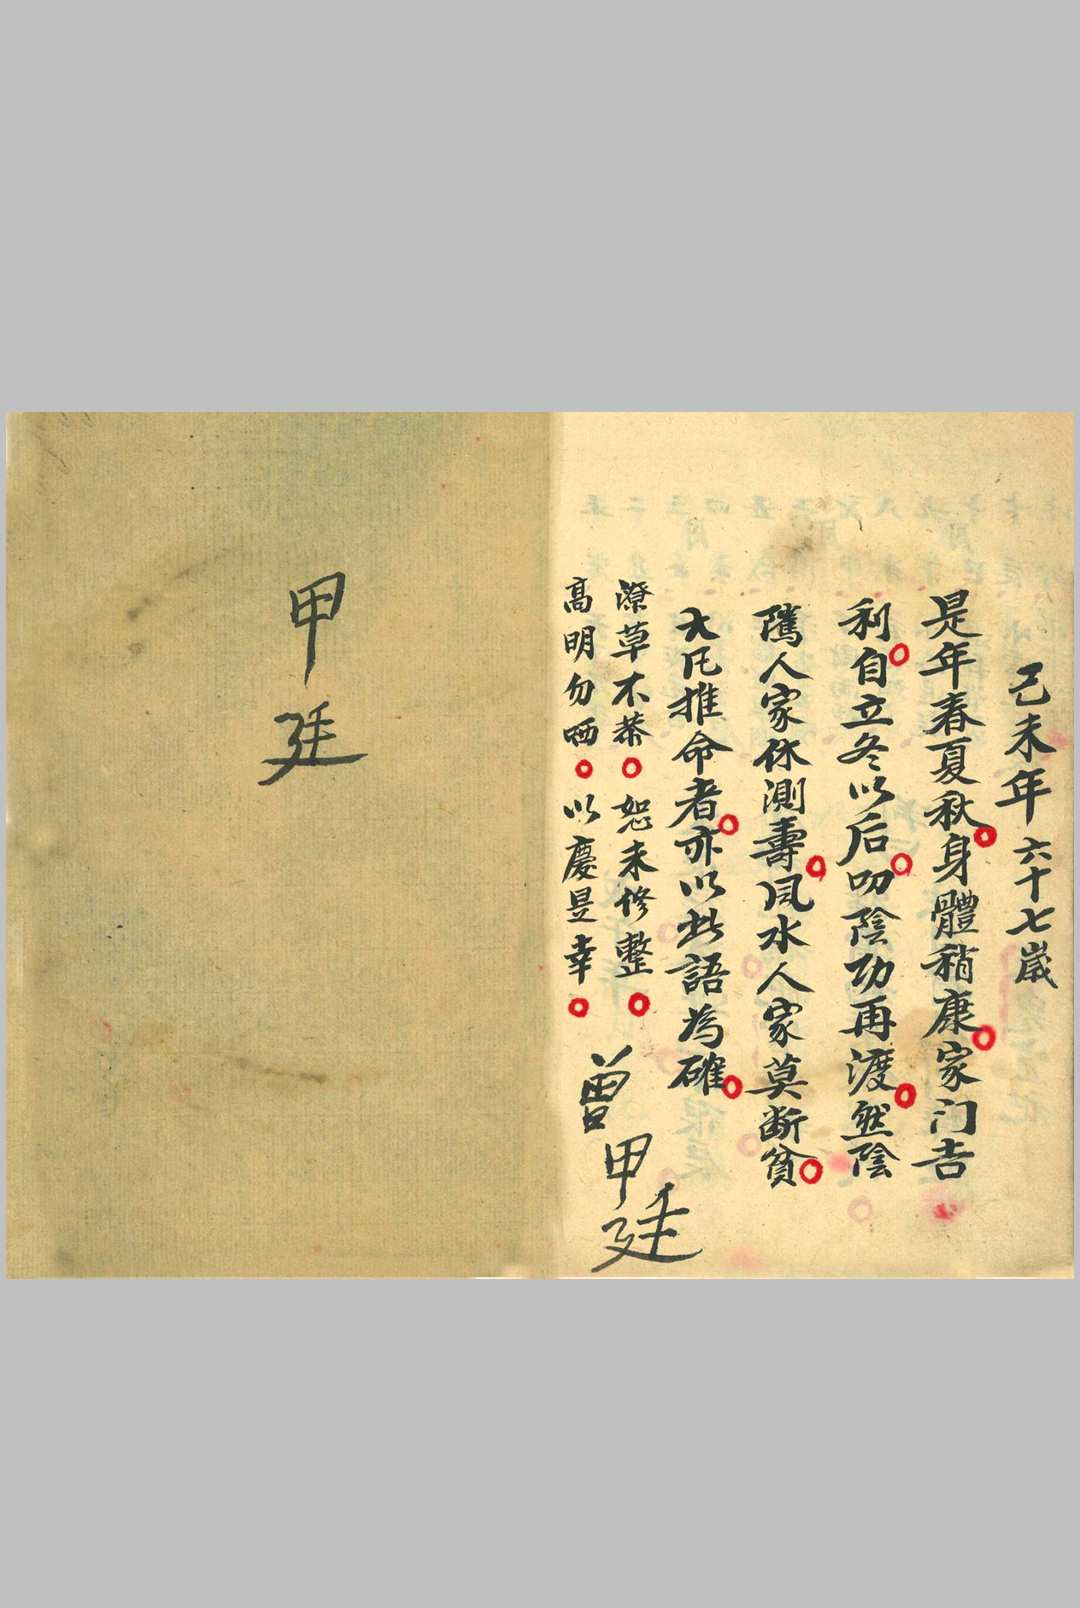 己未年 六十七歲
是年春夏秋。身體稍康。家门吉
利。自立冬以后。叨陰功再渡。然陰
隲人家休測壽。风水人家莫断貧。
大凡推命者。亦以此語為確。
潦草不恭。恕未修整。
高明勿哂。以慶是幸。
曾甲廷
甲廷